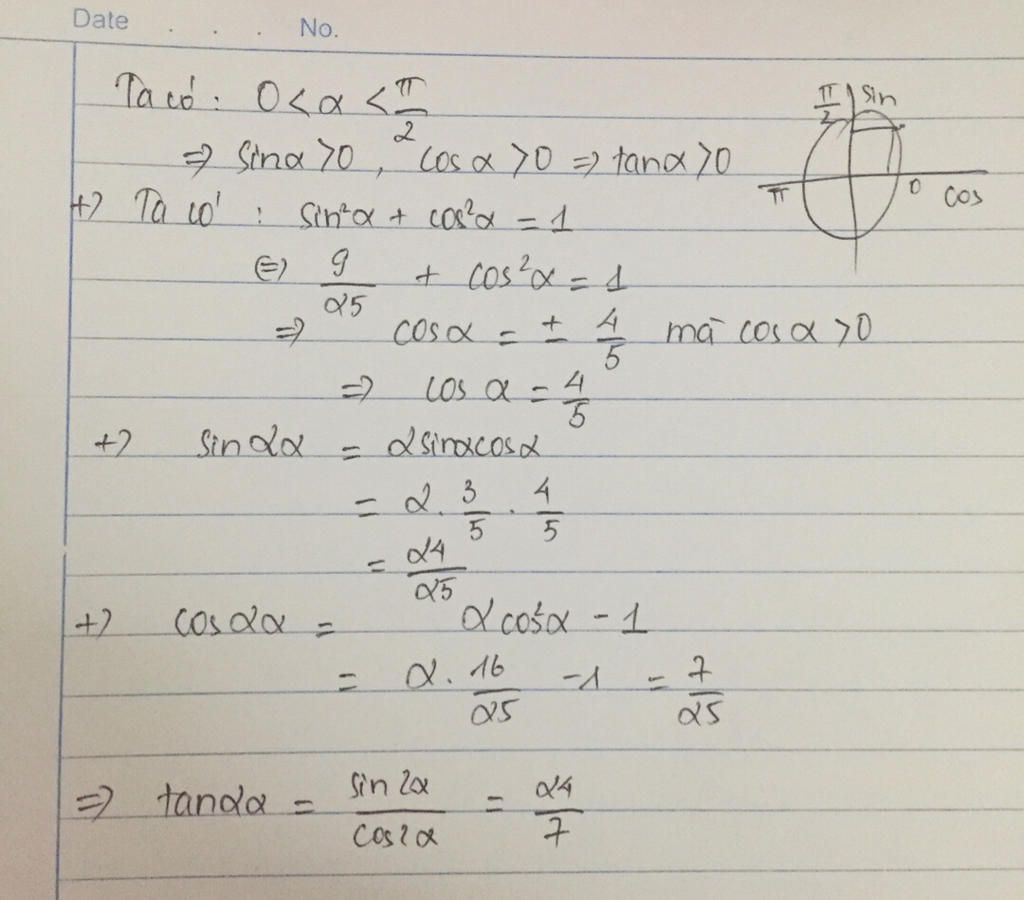 Date . . . No.
Ta có: 0 < α < π/2
⇒ sinα > 0, cosα > 0 ⇒ tanα > 0
π/2 sin
π 0 cos
+) Ta có: sin²α + cos²α = 1
⇔ 9/25 + cos²α = 1
⇒ cosα = ± 4/5 mà cosα > 0
⇒ cosα = 4/5
+) sin2α = 2sinαcosα
= 2. 3/5 . 4/5
= 24/25
+) cos2α = 2cos²α - 1
= 2. 16/25 - 1 = 7/25
⇒ tan2α = sin2α/cos2α = 24/7